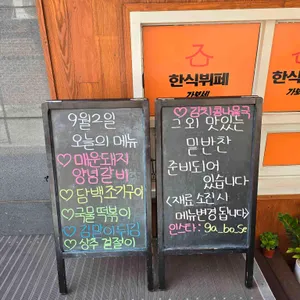 한식뷔페
가보세
9월2일
오늘의 메뉴
♡매운돼지
양념갈비
♡담백조기구이
♡국물떡볶이
♡김말이튀김
♡상추 겉절이
♡김치콩나물국
그외 맛있는
밑반찬
준비되어
있습니다
<재료 소진 시
메뉴변경 됩니다>
인스타: ga_bo_se